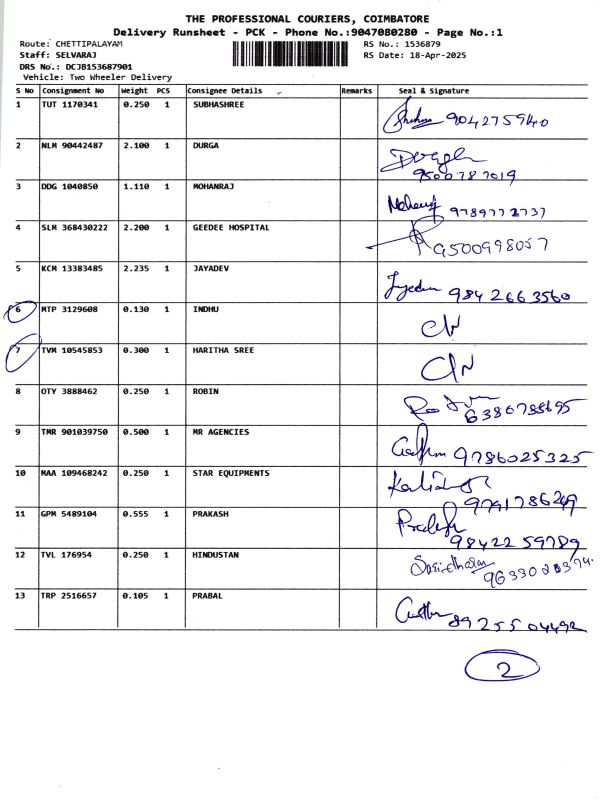 THE PROFESSIONAL COURIERS, COIMBATORE
Delivery Runsheet - PCK - Phone No.:9047080280 - Page No.:1
Route: CHETTIPALAYAM RS No.: 1536879
Staff: SELVARAJ RS Date: 18-Apr-2025
DRS No.: DCJB153687901
Vehicle: Two Wheeler Delivery
S No Consignment No Weight PCS Consignee Details Remarks Seal & Signature
1 TUT 1170341 0.250 1 SUBHASHREE 9042759140
2 NLM 90442487 2.100 1 DURGA Durga
9500787019
3 DDG 1040850 1.110 1 MOHANRAJ 9789772737
4 SLM 368430222 2.200 1 GEEDEE HOSPITAL 9500998057
5 KCM 13383485 2.235 1 JAYADEV 9842663560
6 MTP 3129608 0.130 1 INDHU
7 TVM 10545853 0.300 1 HARITHA SREE
8 OTY 3888462 0.250 1 ROBIN 6386785695
9 TMR 901039750 0.500 1 MR AGENCIES 9786025325
10 MAA 109468242 0.250 1 STAR EQUIPMENTS
11 GPM 5489104 0.555 1 PRAKASH
9842259789
12 TVL 176954 0.250 1 HINDUSTAN Sasidharan
13 TRP 2516657 0.105 1 PRABAL
8925504492
2